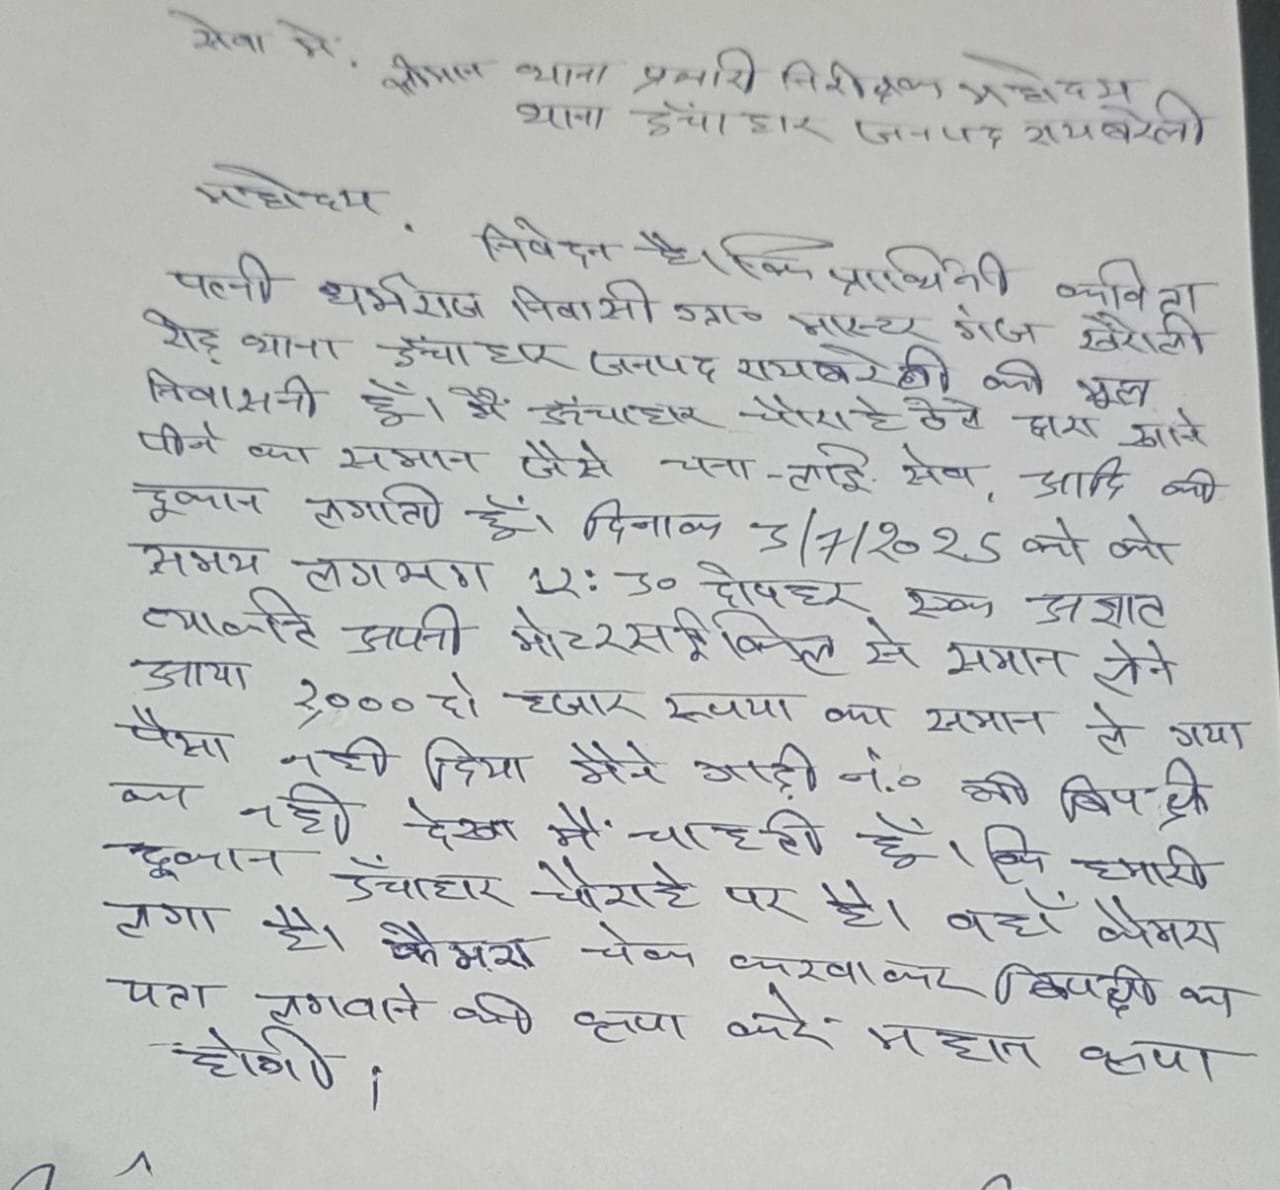 सेवा में,
श्रीमान थाना प्रभारी निरीक्षक महोदय
थाना ऊँचाहार जनपद रायबरेली
महोदय,
निवेदन है। कि प्रार्थिनी कविता
पत्नी धर्मराज निवासी ग्रा० मास्टर गंज खरौली
रोड़ थाना ऊँचाहार जनपद रायबरेली की मूल
निवासनी हूँ। मैं ऊंचाहार चौराहे ठेले द्वारा खाने
पीने का समान जैसे चना-लाई सेव, आदि की
दूकान लगाती हूँ। दिनाक 3/7/2025 को को
समय लगभग 12:30 दोपहर एक अज्ञात
व्याक्ति अपनी मोटरसाईकिल से समान लेने
आया 2,000 दो हजार रूपया का समान ले गया
पैसा नही दिया मैने गाड़ी नं० भी विपक्षी
का नही देखा मैं चाहती हूँ। कि हमारी
दूकान ऊँचाहार चौराहे पर है। वहाँ कैमरा
लगा है। कैमरा चेक करवाकर विपक्षी का
पता लगवाने की कृपा करें महान कृपा
होगी।